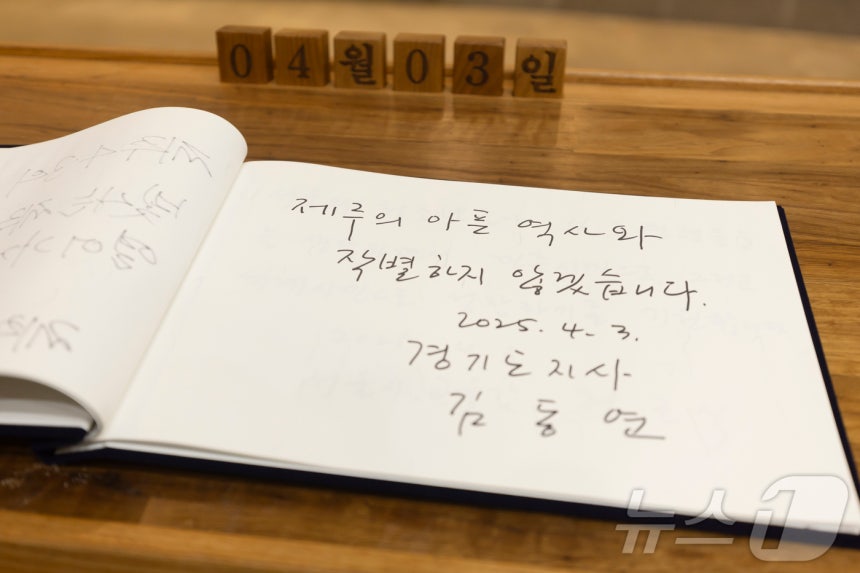 04월03일
제주의 아픈 역사와
작별하지 않겠습니다.
2025. 4. 3.
경기도지사
김동연
뉴스1